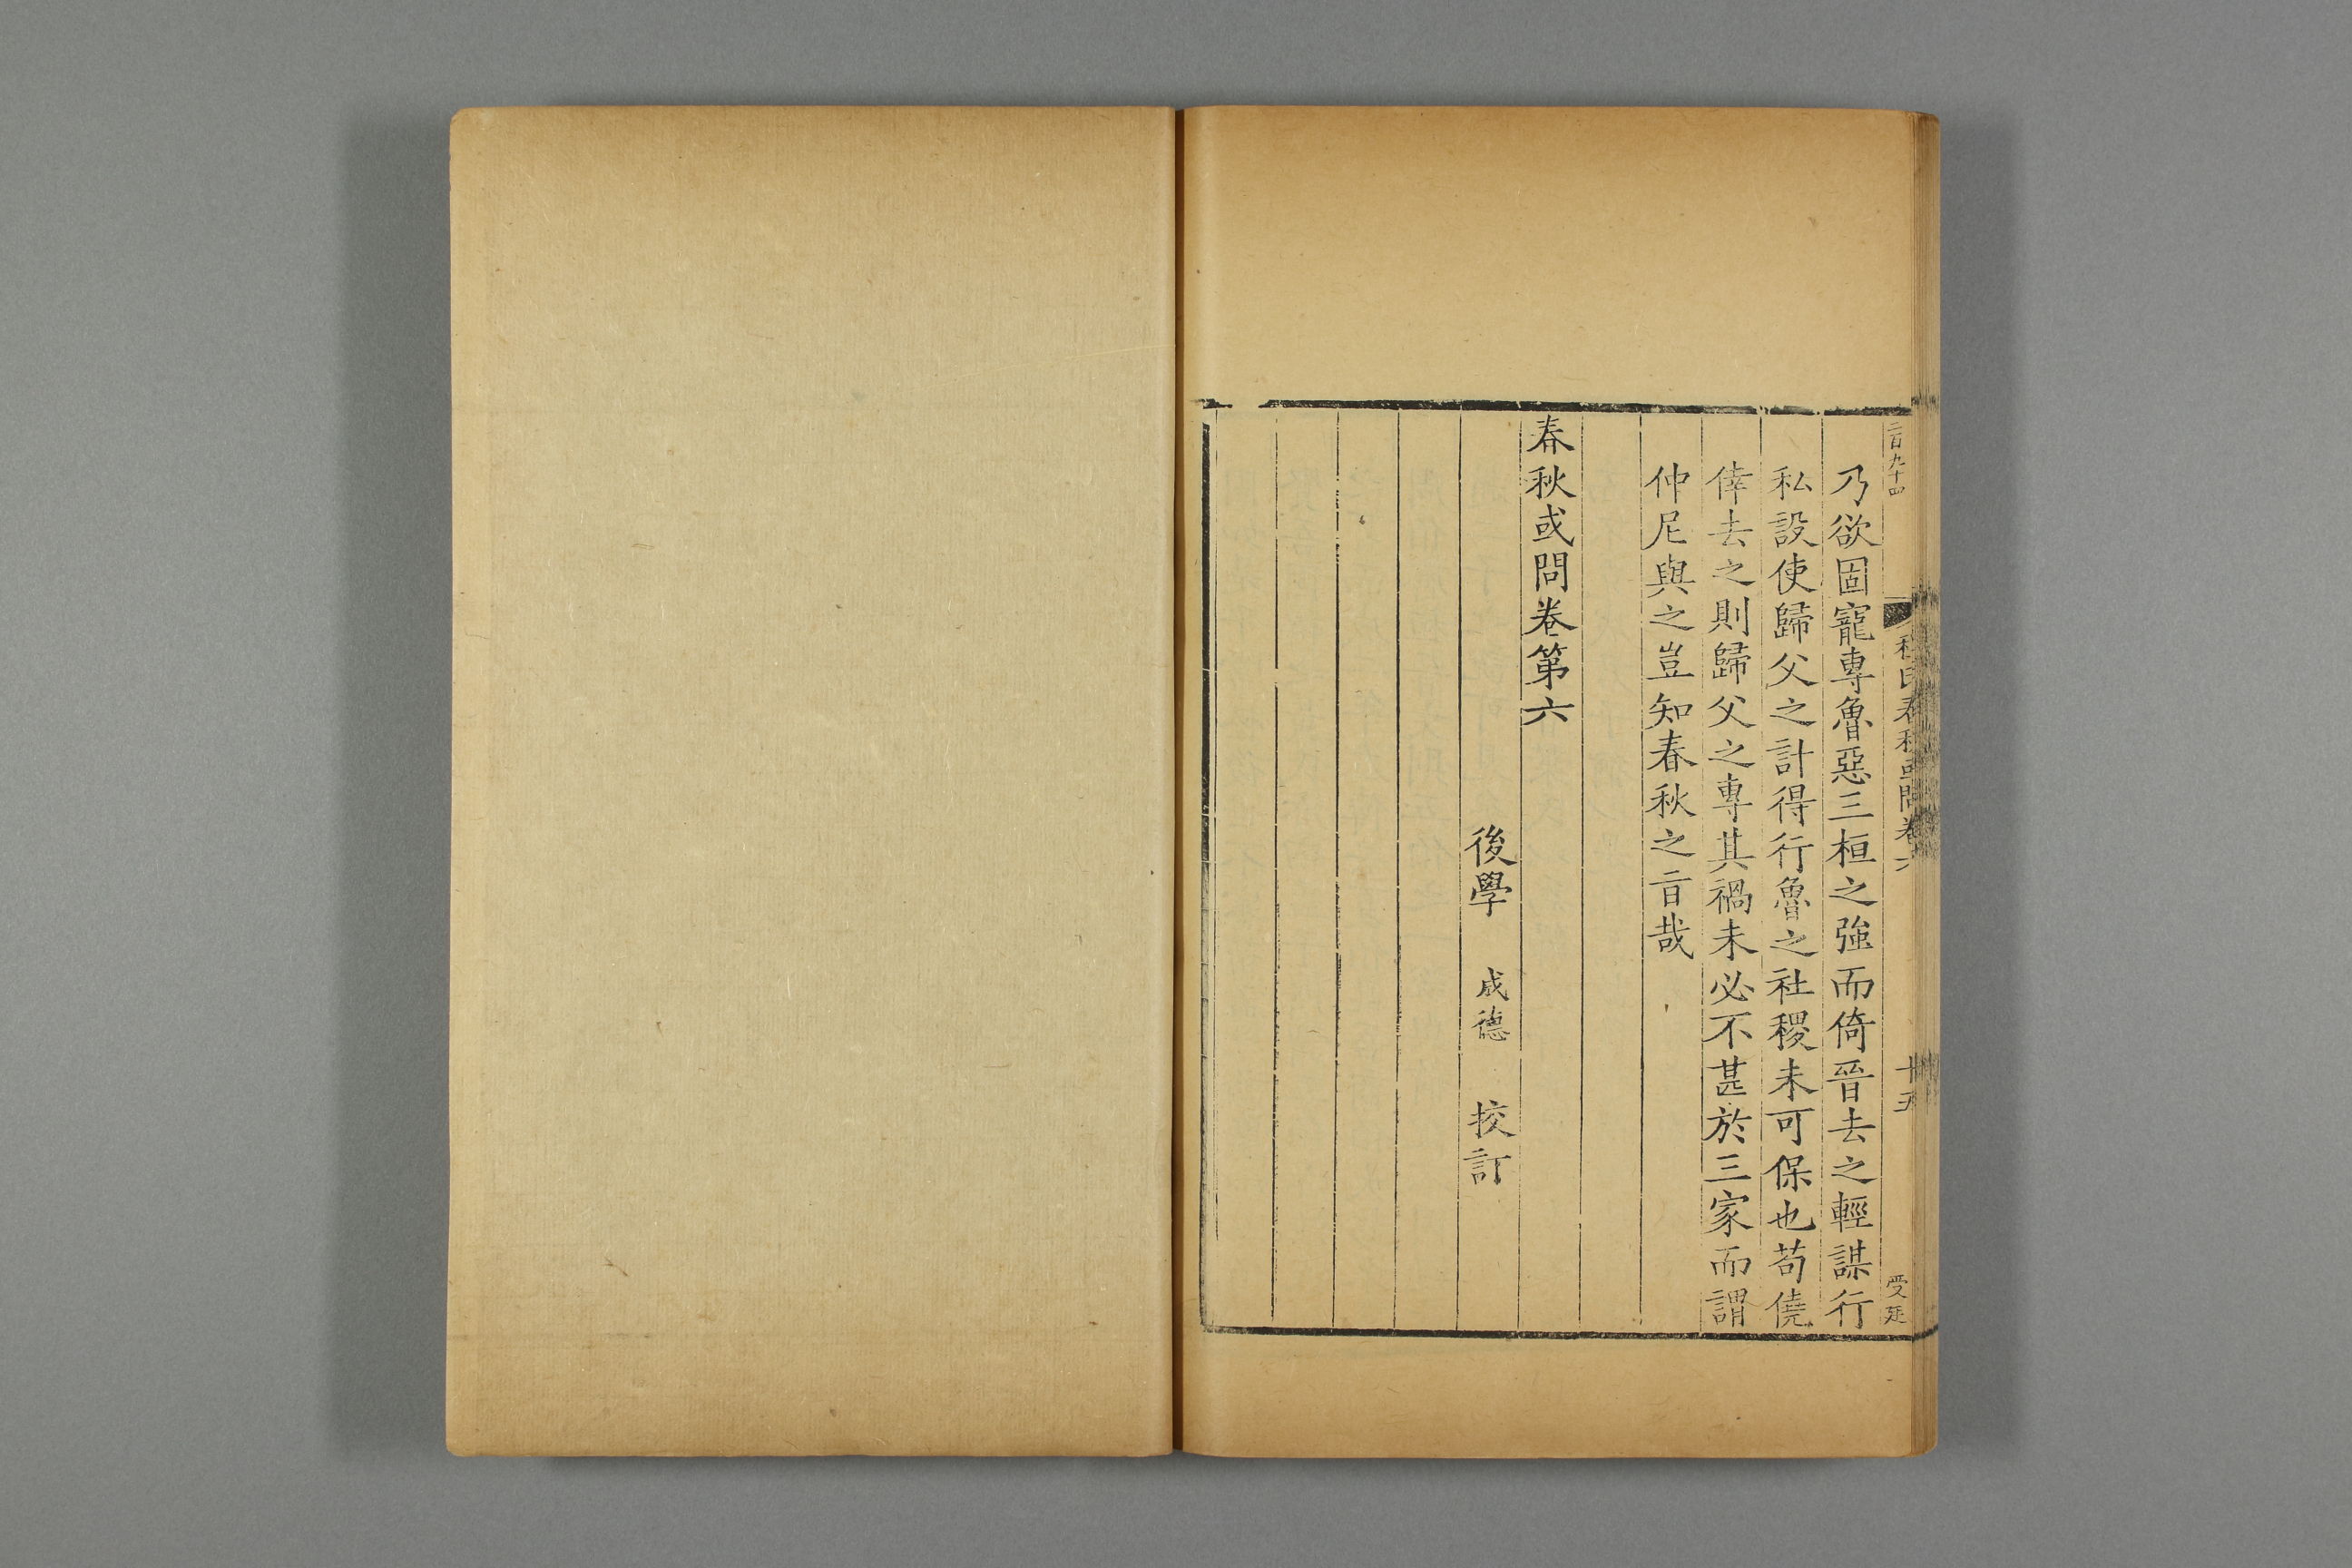 二百九十四
程氏春秋或問卷六
十五
受延
乃欲固寵專魯惡三桓之強而倚晉去之輕謀行
私設使歸父之計得行魯之社稷未可保也苟僥
倖去之則歸父之專其禍未必不甚於三家而謂
仲尼與之豈知春秋之㫖哉
春秋或問卷第六
後學 成德 校訂